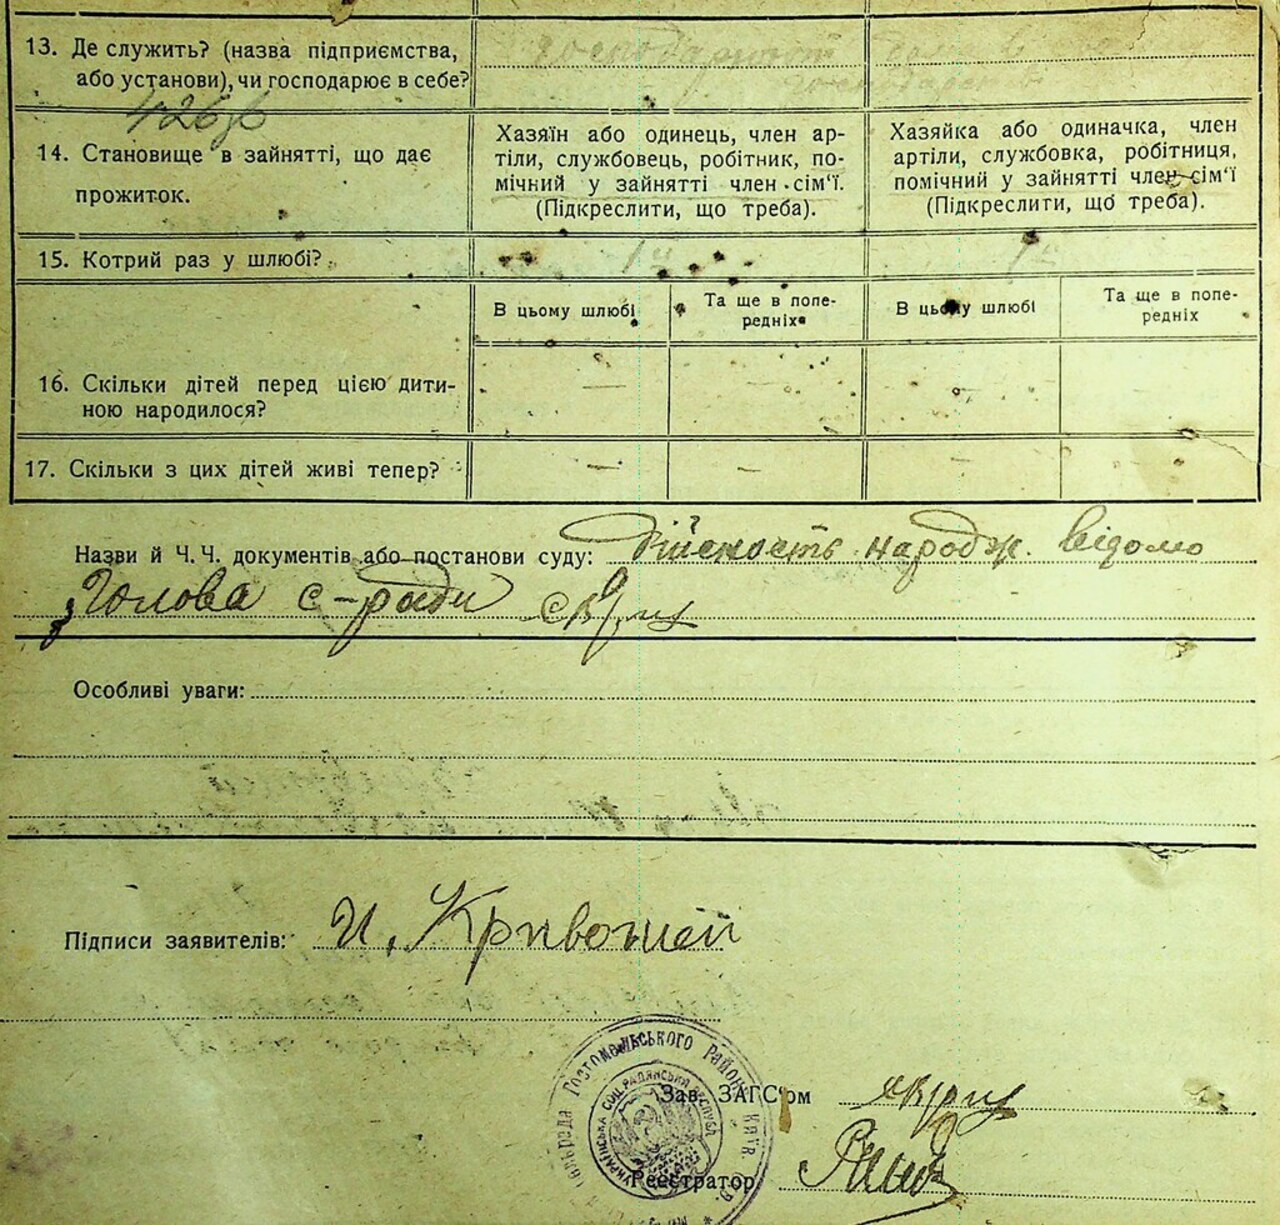 13. Де служить? (назва підприємства,
або установи), чи господарює в себе?
14. Становище в зайнятті, що дає
прожиток.
Хазяїн або одинець, член ар-
тіли, службовець, робітник, по-
мічний у зайнятті член сім'ї.
(Підкреслити, що треба).
Хазяйка або одиначка, член
артіли, службовка, робітниця,
помічний у зайнятті член сім'ї
(Підкреслити, що треба).
15. Котрий раз у шлюбі?
1й
1й
В цьому шлюбі
Та ще в попе-
редніх
В цьому шлюбі
Та ще в попе-
редніх
16. Скільки дітей перед цією дити-
ною народилося?
— — — —
17. Скільки з цих дітей живі тепер?
— — — —
Назви й Ч. Ч. документів або постанови суду: Дійсность народж. відомо
Голова с-ради
Особливі уваги:
Підписи заявителів: И. Кривошей
Гостомельського Район
Українська Соц. Радянська Республ
Зав. ЗАГС'ом
Реєстратор